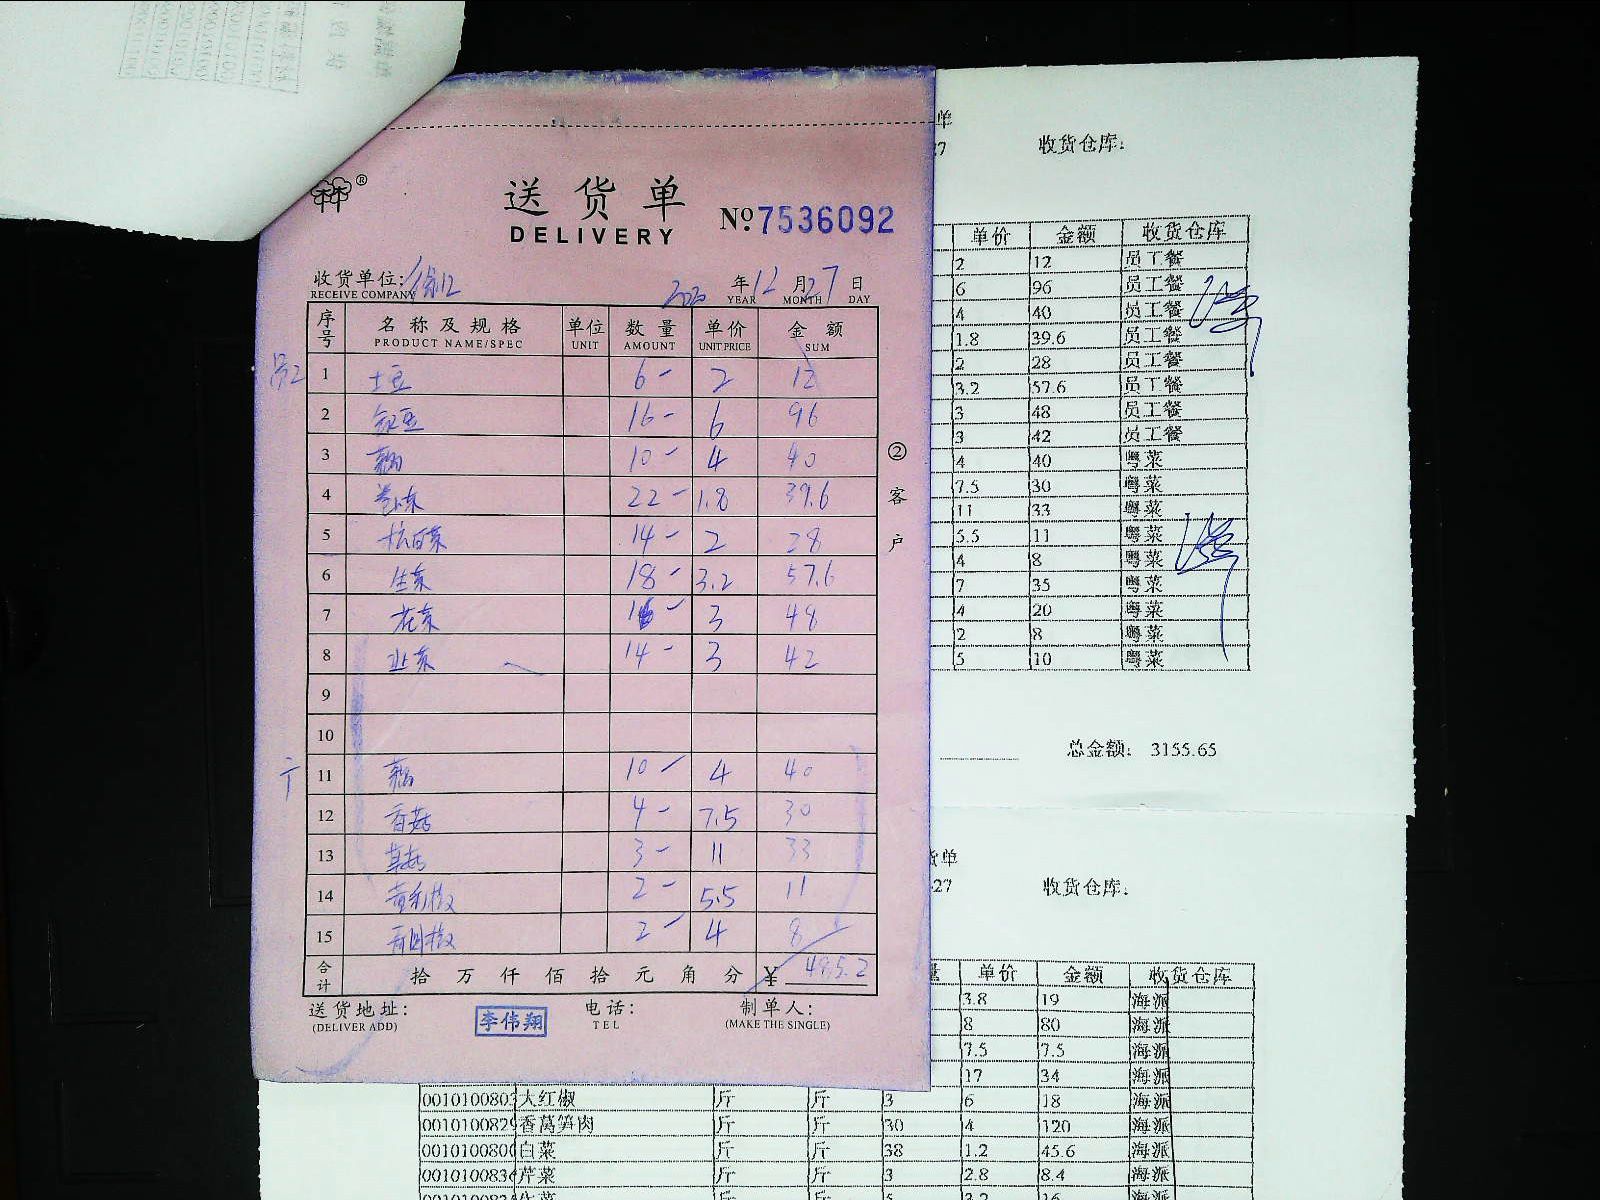 送货单
DELIVERY
№:7536092
收货单位:徐汇
RECEIVE COMPANY
2020 年 12 月 27 日
YEAR MONTH DAY
序号 名称及规格 单位 数量 单价 金额
PRODUCT NAME/SPEC UNIT AMOUNT UNIT PRICE SUM
员工
1 土豆 6- 2 12
2 16- 6 96
3 10- 4 40
4 22- 1.8 39.6
5 14- 2 28
6 生菜 18- 3.2 57.6
7 花菜 16- 3 48
8 14- 3 42
9
10
11 10- 4 40
12 香菇 4- 7.5 30
13 草菇 3- 11 33
14 2- 5.5 11
15 青圆椒 2- 4 8
合计 拾万仟佰拾元角分 ¥ 485.2
②客户
送货地址: 李伟翔 电话: 制单人:
(DELIVER ADD) TEL (MAKE THE SINGLE)
单
27 收货仓库:
单价 金额 收货仓库
2 12 员工餐
6 96 员工餐
4 40 员工餐
1.8 39.6 员工餐
2 28 员工餐
3.2 57.6 员工餐
3 48 员工餐
3 42 员工餐
4 40 粤菜
7.5 30 粤菜
11 33 粤菜
5.5 11 粤菜
4 8 粤菜
7 35 粤菜
4 20 粤菜
2 8 粤菜
5 10 粤菜
总金额: 3155.65
货单
-27 收货仓库:
量 单价 金额 收货仓库
3.8 19 海派
8 80 海派
7.5 7.5 海派
17 34 海派
001010080 大红椒 斤 斤 3 6 18 海派
0010100829 香莴笋肉 斤 斤 30 4 120 海派
001010080 白菜 斤 斤 38 1.2 45.6 海派
001010083 芹菜 斤 斤 3 2.8 8.4 海派